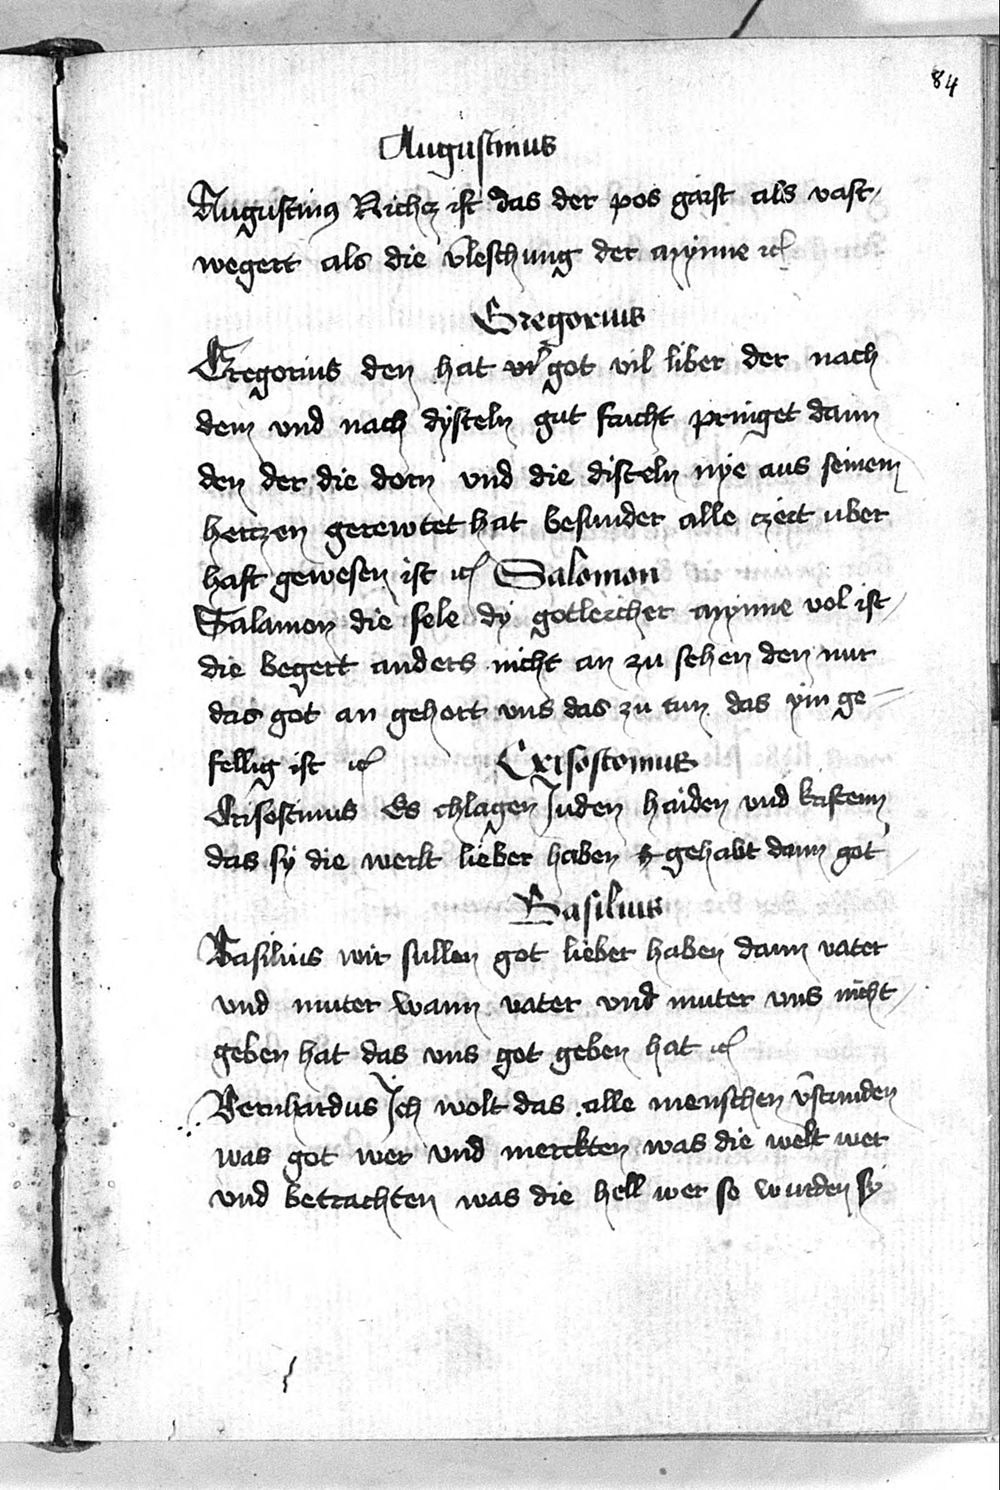 84
Augustinus
Augustinus Nichcz ist das der pos gaist als vast
wegert als die vleschung der mynne etc
Gregorius
Gregorius den hat vnser got vil liber der nach
dem vnd nach dysteln gut frucht pringet dann
den der die dorn vnd die disteln nye aus seinem
hertzen gerewtet hat besunder alle czeit uber
haft gewesen ist etc Salomon
Salamon die sele dy gotleicher mynne vol ist
die begert anders nicht an zu sehen den nur
das got an gehort vns das zu tun das ym ge=
fellig ist etc Crisostomus
Crisostimus Es chlagen Juden haiden vnd kristenn
das sy die werlt lieber haben gehabt dann got
Basilius
Basilius wir sullen got lieber haben dann vater
vnd muter wann vater vnd muter vns nicht
geben hat das vns got geben hat etc
Bernhardus Ich wolt das alle menschen v̄stunden
was got wer vnd merckten was die welt wer
vnd betrachten was die hell wer so wurden sy